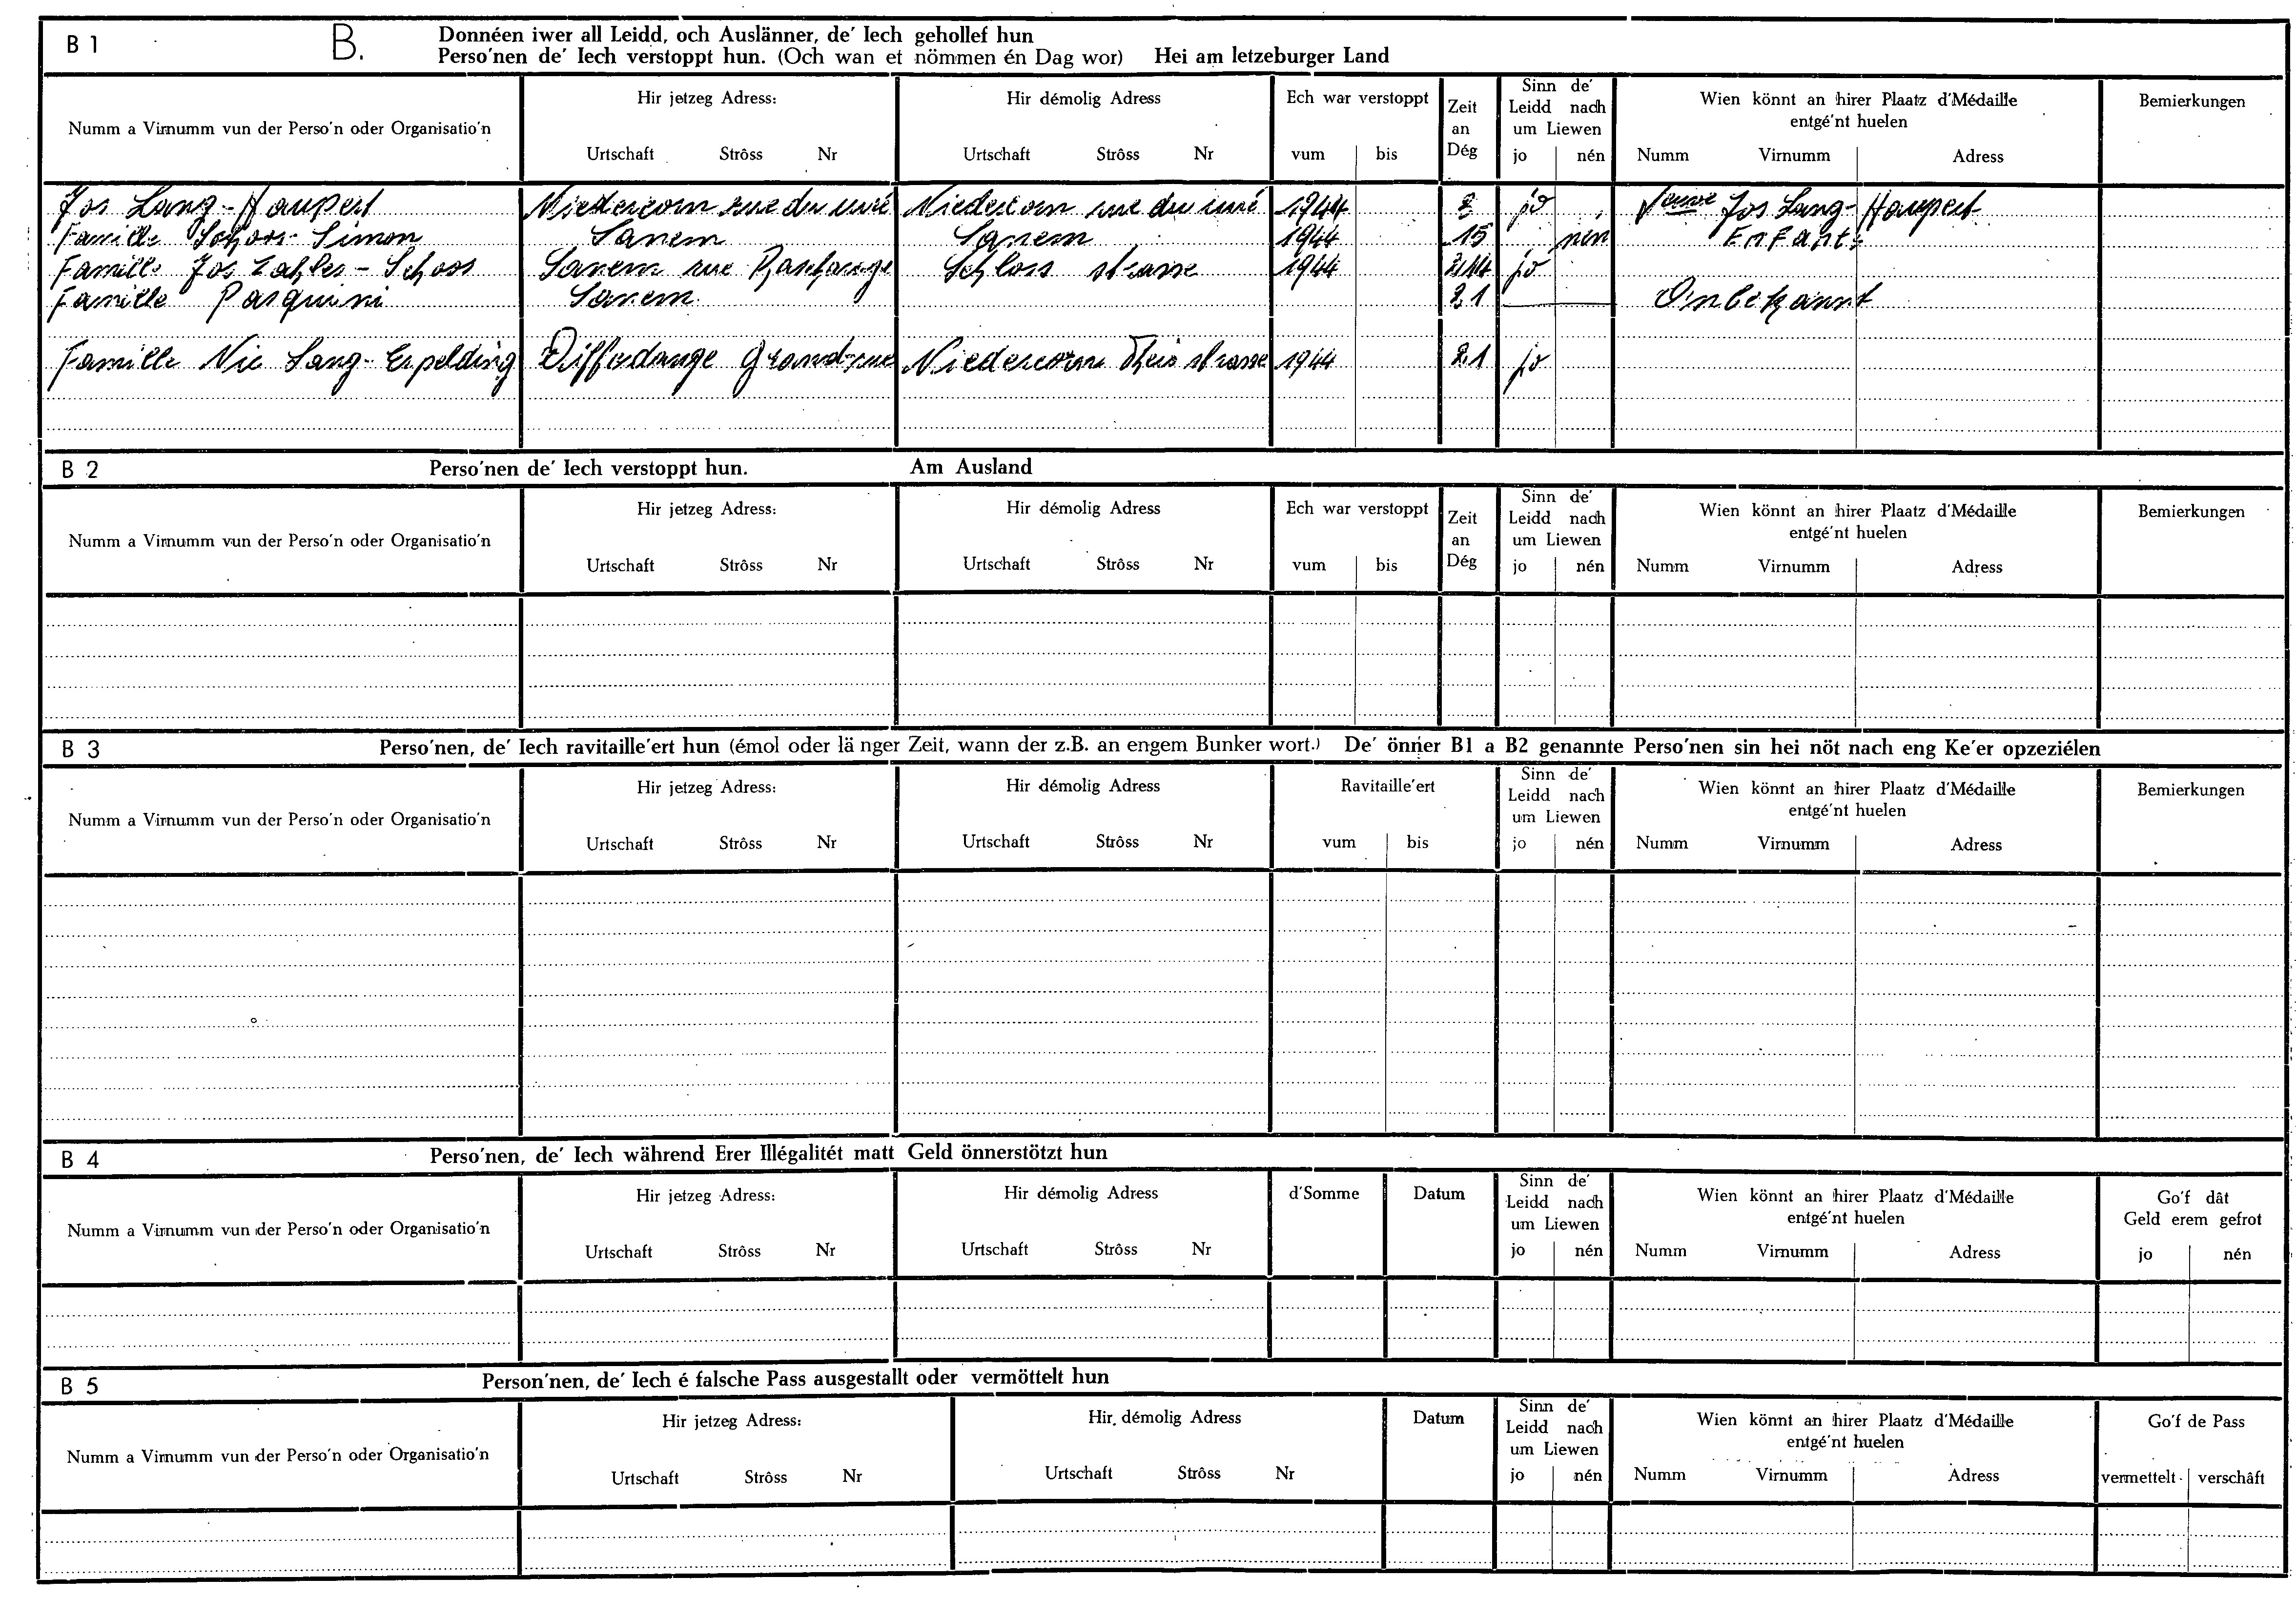 B 1 B. Donnéen iwer all Leidd, och Auslänner, de' Iech gehollef hun
Perso'nen de' Iech verstoppt hun. (Och wan et nömmen én Dag wor) Hei am letzeburger Land
Numm a Virnumm vun der Perso'n oder Organisatio'n
Hir jetzeg Adress:
Urtschaft Strôss Nr
Hir démolig Adress
Urtschaft Strôss Nr
Ech war verstoppt
vum bis
Zeit
an
Dég
Sinn de'
Leidd nach
um Liewen
jo nén
Wien könnt an hirer Plaatz d'Médaille
entgé'nt huelen
Numm Virnumm Adress
Bemierkungen
Jos Lang-Haupert Niedercorn rue du curé Niedercorn rue du curé 1944 jo Veuve Jos Lang-Haupert
Famille Schoos-Simon Sanem Sanem 1944 15 nén Enfants
Famille Jos Zahles-Schoos Sanem rue Bascharage Schloss strasse 1944 jo
Famille Pasquini Sanem 21 Onbekannt
Famille Nic Lang-Erpelding Differdange Grand-rue Niedercorn Theis strasse 1944 21 jo
B 2 Perso'nen de' Iech verstoppt hun. Am Ausland
Numm a Virnumm vun der Perso'n oder Organisatio'n
Hir jetzeg Adress:
Urtschaft Strôss Nr
Hir démolig Adress
Urtschaft Strôss Nr
Ech war verstoppt
vum bis
Zeit
an
Dég
Sinn de'
Leidd nach
um Liewen
jo nén
Wien könnt an hirer Plaatz d'Médaille
entgé'nt huelen
Numm Virnumm Adress
Bemierkungen
B 3 Perso'nen, de' Iech ravitaille'ert hun (émol oder lä nger Zeit, wann der z.B. an engem Bunker wort.) De' önner B1 a B2 genannte Perso'nen sin hei nöt nach eng Ke'er opzeziélen
Numm a Virnumm vun der Perso'n oder Organisatio'n
Hir jetzeg Adress:
Urtschaft Strôss Nr
Hir démolig Adress
Urtschaft Strôss Nr
Ravitaille'ert
vum bis
Sinn de'
Leidd nach
um Liewen
jo nén
Wien könnt an hirer Plaatz d'Médaille
entgé'nt huelen
Numm Virnumm Adress
Bemierkungen
B 4 Perso'nen, de' Iech während Erer Illégalitét matt Geld önnerstötzt hun
Numm a Virnumm vun der Perso'n oder Organisatio'n
Hir jetzeg Adress:
Urtschaft Strôss Nr
Hir démolig Adress
Urtschaft Strôss Nr
d'Somme
Datum
Sinn de'
Leidd nach
um Liewen
jo nén
Wien könnt an hirer Plaatz d'Médaille
entgé'nt huelen
Numm Virnumm Adress
Go'f dât
Geld erem gefrot
jo nén
B 5 Person'nen, de' Iech é falsche Pass ausgestallt oder vermöttelt hun
Numm a Virnumm vun der Perso'n oder Organisatio'n
Hir jetzeg Adress:
Urtschaft Strôss Nr
Hir démolig Adress
Urtschaft Strôss Nr
Datum
Sinn de'
Leidd nach
um Liewen
jo nén
Wien könnt an hirer Plaatz d'Médaille
entgé'nt huelen
Numm Virnumm Adress
Go'f de Pass
vermettelt verschâft